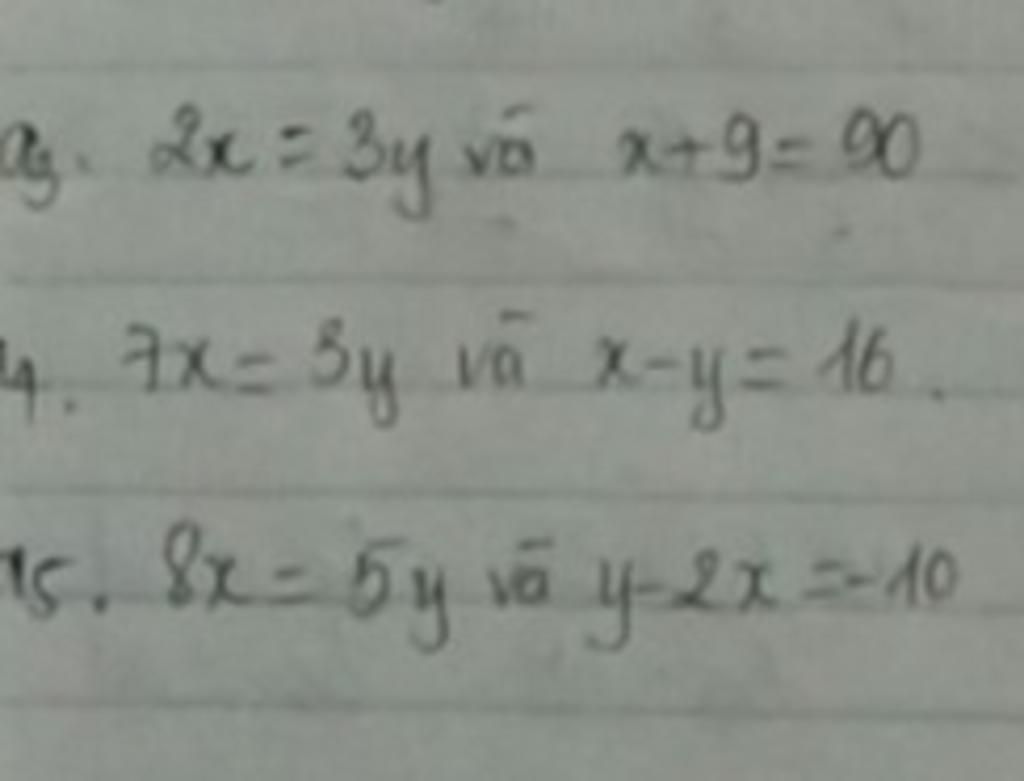 a3. 2x = 3y và x+9= 90
14. 7x = 3y và x-y = 16.
15. 8x = 5y và y-2x =-10